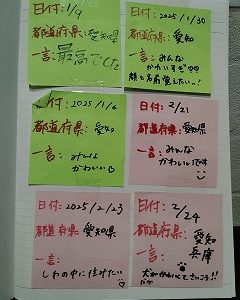 日付:1/9
都道府県:愛知県
一言:最高でした
日付:2025/1/30
都道府県:愛知
一言:みんな
かわいすぎ♡♡
顔と名前覚えたいっ!
日付:2025/1/6
都道府県:愛知
一言:みんな
かわいい♡
日付:2/21
都道府県:愛知県
一言:みんな
かわいいです
日付:2025/2/23
都道府県:愛知県
一言:
しわの中に住みたい♡
日付:2/24
都道府県:愛知
兵庫
一言:
犬がかわいくてさいこう!!